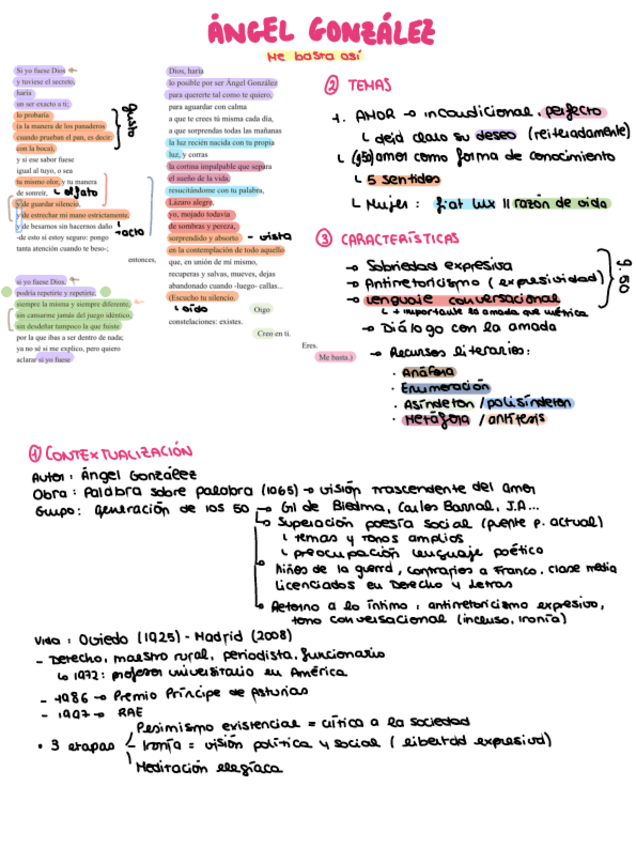 ÁNGEL GONZÁLEZ
Me basta así
Si yo fuese Dios
y tuviese el secreto,
haría
un ser exacto a ti;
lo probaría
(a la manera de los panaderos
cuando prueban el pan, es decir:
con la boca),
gusto
y si ese sabor fuese
igual al tuyo, o sea
tu mismo olor, y tu manera
de sonreír, olfato
y de guardar silencio,
y de estrechar mi mano estrictamente,
y de besarnos sin hacernos daño tacto
-de esto sí estoy seguro: pongo
tanta atención cuando te beso-;
entonces,
si yo fuese Dios,
podría repetirte y repetirte,
siempre la misma y siempre diferente,
sin cansarme jamás del juego idéntico,
sin desdeñar tampoco la que fuiste
por la que ibas a ser dentro de nada;
ya no sé si me explico, pero quiero
aclarar si yo fuese
Dios, haría
lo posible por ser Ángel González
para quererte tal como te quiero,
para aguardar con calma
a que te crees tú misma cada día,
a que sorprendas todas las mañanas
la luz recién nacida con tu propia
luz, y corras
la cortina impalpable que separa
el sueño de la vida,
resucitándome con tu palabra,
Lázaro alegre,
yo, mojado todavía
de sombras y pereza,
sorprendido y absorto - vista
en la contemplación de todo aquello
que, en unión de mí mismo,
recuperas y salvas, mueves, dejas
abandonado cuando -luego- callas...
(Escucho tu silencio.
oído
Oigo
constelaciones: existes.
Creo en ti.
Eres.
Me basta.)
② TEMAS
1. AMOR → incondicional, perfecto
deja claro su deseo (reiteradamente)
amor como forma de conocimiento
5 sentidos
Mujer: fiat lux || razón de vida
③ CARACTERÍSTICAS
→ Sobriedad expresiva
→ Antirretoricismo (expresividad)
→ Lenguaje conversacional
g.50
+ importante la amada que métrica
→ Diálogo con la amada
→ Recursos literarios:
· Anáfora
· Enumeración
· Asíndeton / polisíndeton
· Metáfora / antítesis
① CONTEXTUALIZACIÓN
Autor: Ángel González
Obra: Palabra sobre palabra (1965) → visión trascendente del amor
Grupo: generación de los 50 → Gil de Biedma, Carlos Barral, J.A...
Superación poesía social (puente p. actual)
temas y tonos amplios
preocupación lenguaje poético
Niños de la guerra, contrarios a Franco, clase media
Licenciados en Derecho y Letras
Retorno a lo íntimo: antirretoricismo expresivo,
tono conversacional (incluso, ironía)
Vida: Oviedo (1925) - Madrid (2008)
- Derecho, maestro rural, periodista, funcionario
1972: profesor universitario en América
- 1986 → Premio Príncipe de Asturias
- 1997 → RAE
Pesimismo existencial = crítica a la sociedad
• 3 etapas - Ironía = visión política y social (libertad expresiva)
Meditación elegíaca